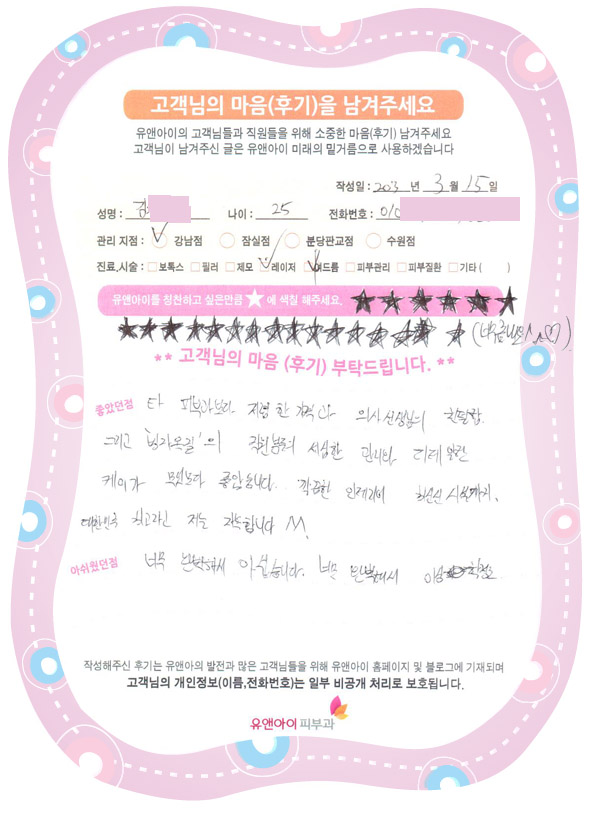 고객님의 마음(후기)을 남겨주세요
유앤아이의 고객님들과 직원들을 위해 소중한 마음(후기) 남겨주세요
고객님이 남겨주신 글은 유앤아이 미래의 밑거름으로 사용하겠습니다
작성일 : 2013 년 3 월 15 일
성명 : 김 나이 : 25 전화번호 : 010
관리 지점 : 강남점 잠실점 분당판교점 수원점
진료,시술 : 보톡스 필러 제모 레이저 여드름 피부관리 피부질환 기타 ( )
유앤아이를 칭찬하고 싶은만큼 ★ 에 색칠 해주세요.
** 고객님의 마음 (후기) 부탁드립니다. **
좋았던점 타 피부과보다 저렴한 가격과 의사선생님의 친절함
그리고 직원분들의 세심한
케어가 무엇보다 좋았습니다. 깔끔한 인테리어 최신식 시설까지.
대한민국 최고라고 저는 자부합니다 ^^.
아쉬웠던점 너무 완벽해서 아쉽습니다. 너무 완벽해서
작성해주신 후기는 유앤아의 발전과 많은 고객님들을 위해 유앤아이 홈페이지 및 블로그에 기재되며
고객님의 개인정보(이름,전화번호)는 일부 비공개 처리로 보호됩니다.
유앤아이 피부과